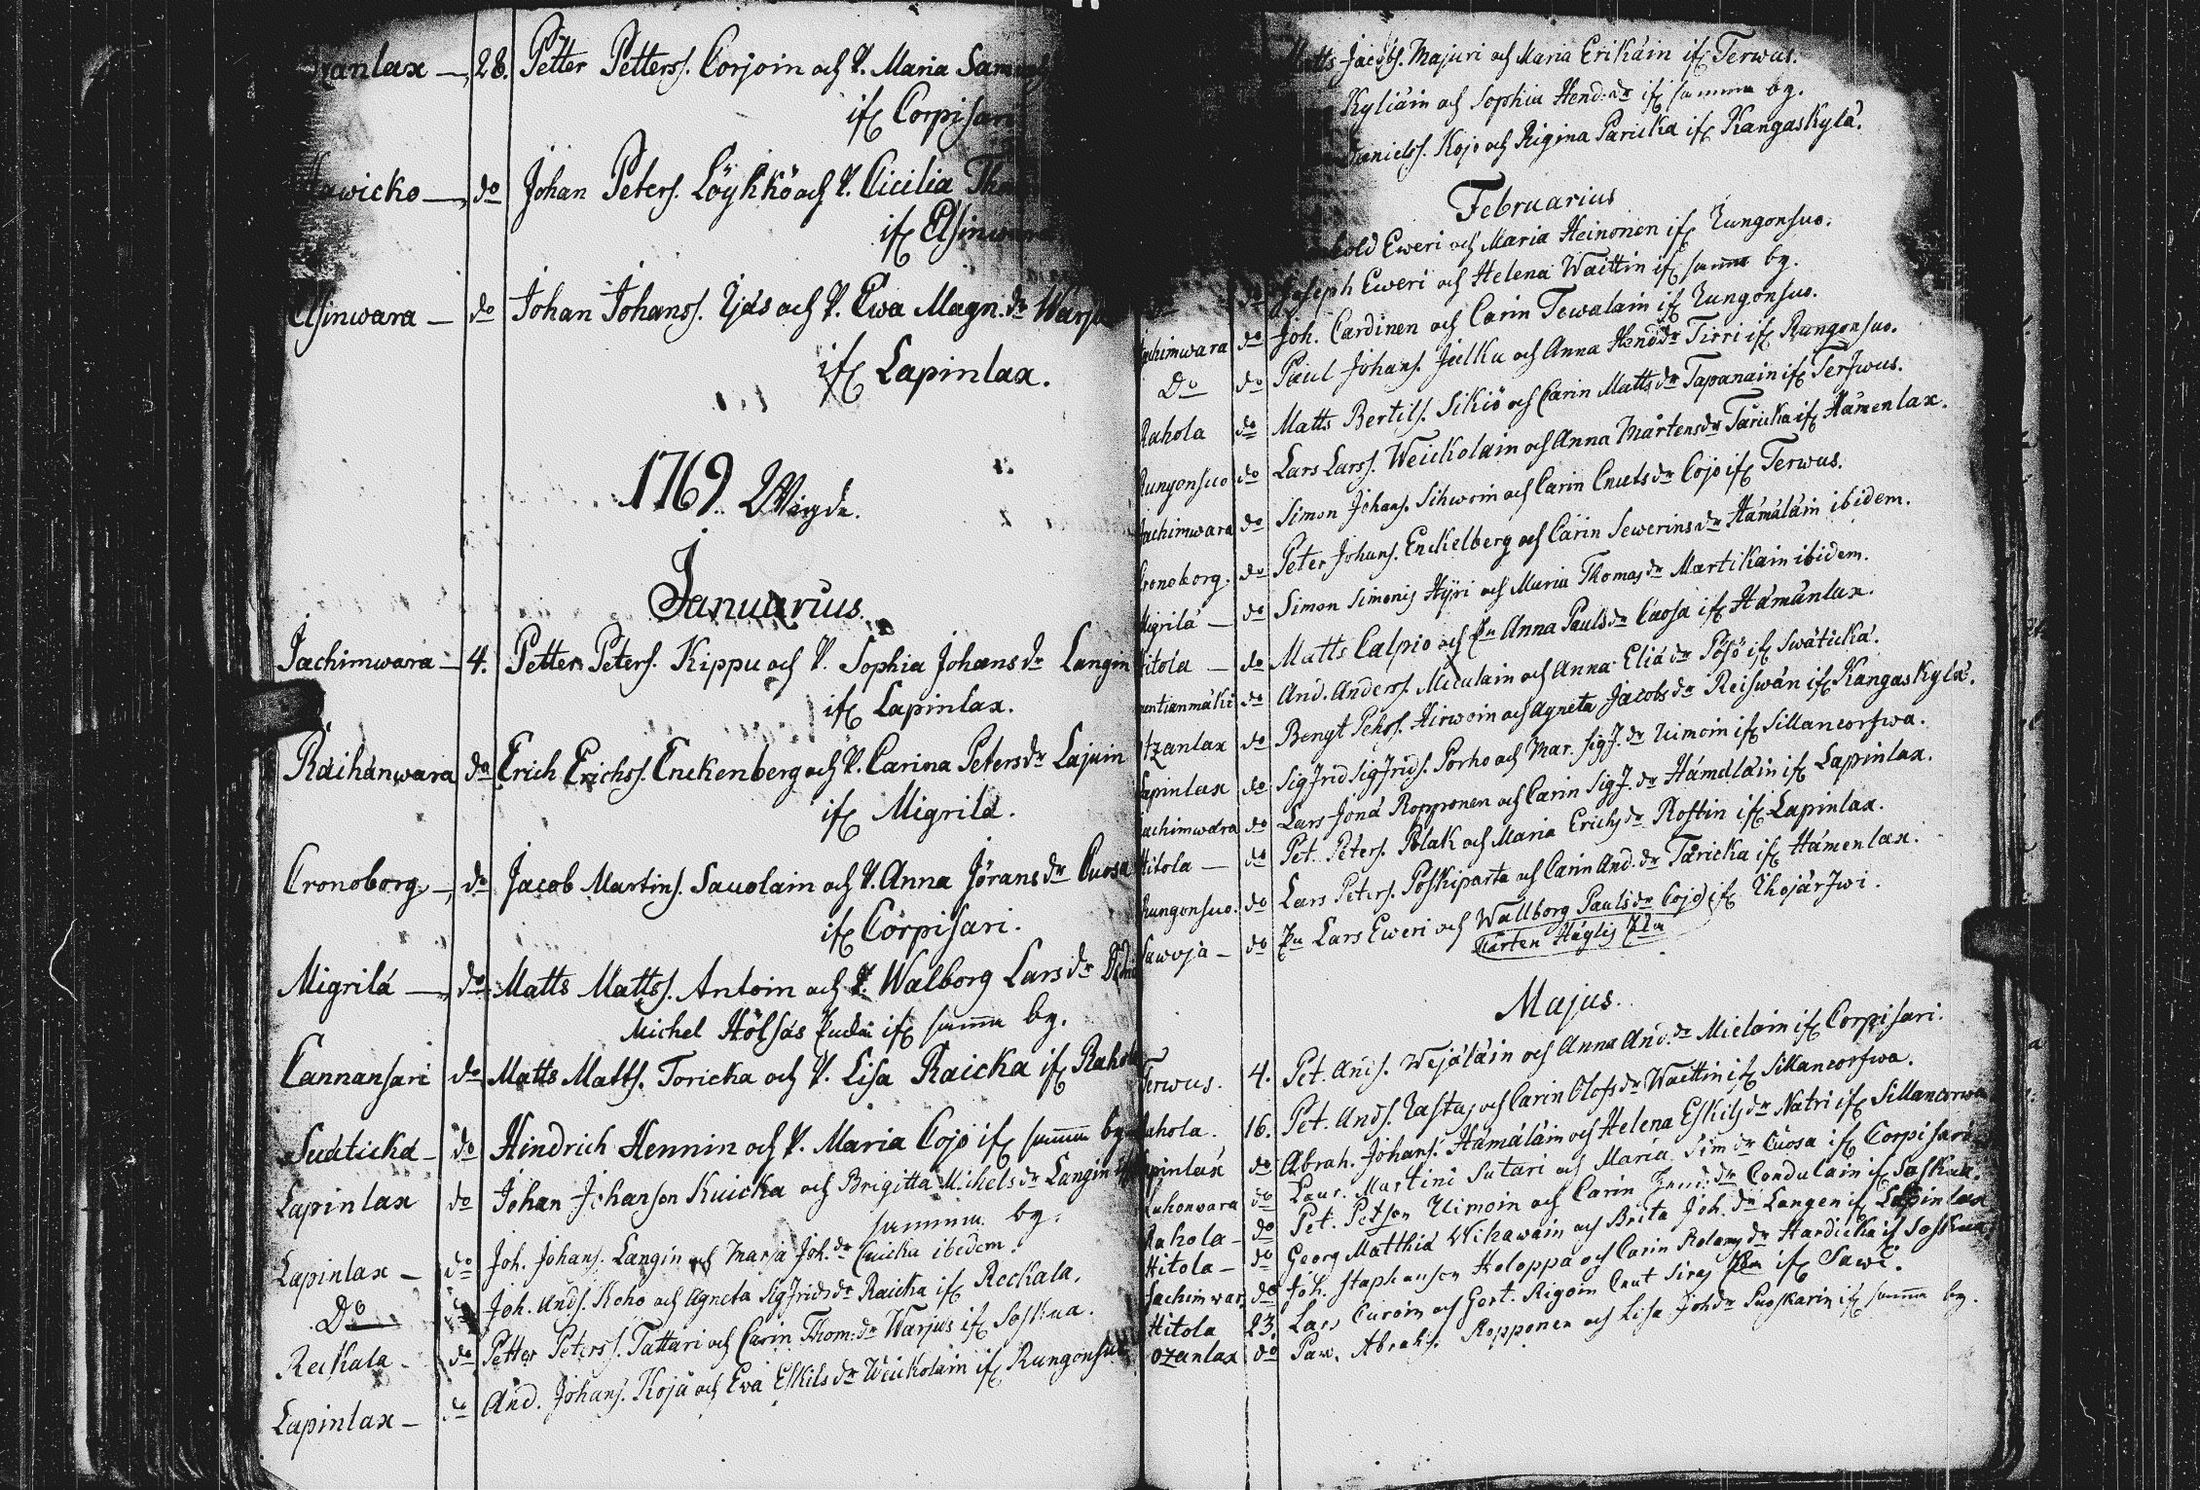 28. Petter Petterss. Corjoin och P. Maria
ifr Corpisari
do Johan Peterss. Löykkö och P. Cicilia
ifr Elsinwara
Elsinwara — do Johan Johanss. Ijäs och P. Ewa Magn.dr
ifr Lapinlax.
1769. Wigde.
Januarius
Jachimwara — 4. Petter Peters. Kippu och P. Sophia Johansdr Langin
ifr Lapinlax.
Räihänwara do Erich Erichss. Enckenberg och P. Carina Petersdr Lajuin
ifr Migrilä.
Cronoborg — do Jacob Martins. Sauolain och P. Anna Jöransdr Cuosa
ifr Corpisari.
Migrilä — do Matts Mattss. Antoin och P. Walborg Larsdr
Michel Hölsäs ifr samma by.
Cannansari do Matts Matts. Toricka och P. Lisa Raicka ifr Rahola
Suäticka — do Hindrich Hennin och P. Maria Cojo ifr samma by
Lapinlax do Johan Johanson Kuicka och Brigitta Michelsdr Langin ifr
samma by.
Lapinlax — do Joh. Johans. Langin och Marja Joh.dr Cuicka ibidem.
Do do Joh. Ands. Koho och Agneta Sigfridsdr Raicka ifr Reckala.
Reckala — do Petter Peterss. Tattari och Carin Thom:dr Warjus ifr Soskua.
Lapinlax — do And. Johans. Koja och Eva Eskilsdr Weickolain ifr Rungonsuo
Matts Jacobs. Majuri och Maria Erikäin ifr Terwus.
Kyliäin och Sophia Hend:dr ifr samma by.
Danielss. Kojo och Rigina Paricka ifr Kangaskylä.
Februarius
Eweri och Maria Heinonen ifr Rungonsuo.
do Joseph Eweri och Helena Waittin ifr samma by.
Jachimwara do Joh. Cardinen och Carin Tewalain ifr Rungonsuo.
Do do Paul Johans. Julku och Anna Hend:dr Tirri ifr Rungonsuo.
Rahola do Matts Bertils. Sikiö och Carin Mattsdr Tapanain ifr Terfwus.
Rungonsuo do Lars Larss. Weickolain och Anna Mårtensdr Taricka ifr Hämenlax.
Jachimwara do Simon Johans. Sihwoin och Carin Cnutsdr Cojo ifr Terwus.
Cronoborg. do Peter Johans. Enckelberg och Carin Sewerinsdr Hämäläin ibidem.
Migrilä — do Simon Simonis Hyri och Maria Thomasdr Martikain ibidem.
Hitola — do Matts Calpio och Anna Paulsdr Cuosa ifr Hämänlax.
do And. Anderss. Miculain och Anna Eliädr Pösö ifr Swäticka.
Otzanlax do Bengt Pehrs. Hirwoin och Agneta Jacobsdr Reiswän ifr Kangaskylä.
Lapinlax do Sigfrid Sigfrids. Porho och Mar. Sigf.dr Uimoin ifr Sillancorfwa.
Jachimwara do Lars Jonä Ropponen och Carin Sigf.dr Hämäläin ifr Lapinlax.
Hitola — do Pet. Peters. Polak och Maria Erichsdr Rostin ifr Lapinlax.
Rungonsuo. do Lars Peters. Poskiparta och Carin And.dr Taricka ifr Hämenlax.
Sawoja — do Lars Eweri och Wallborg Paulsdr Cojo ifr Ihojärfwi.
Mårten Häglis
Majus.
Terwus. 4. Pet. Ands. Wejäläin och Anna And.dr Mielain ifr Corpisari.
Rahola. 16. Pet. Ands. Rastas och Carin Olofsdr Waittin ifr Sillancorfwa.
Lapinlax do Abrah. Johans. Hämäläin och Helena Eskilsdr Natri ifr Sillancorwa
do Laur. Martini Sutari och Maria Sim.dr Cuosa ifr Corpisari.
Rahola — do Pet. Petson Uimoin och Carin Condulain ifr Soskua.
Hitola — do Georg Matthiä Wihawain och Brita Joh.dr Langen ifr Lapinlax
Jachimwar. do Joh. Staphanson Holoppa och Carin Hardicka ifr Soskua.
Hitola 23. Lars Curoin och Gert. Rigoin Cnut Siras ifr Sawi.
Ozanlax do Paw. Abrahs. Ropponen och Lisa Johdr Puoskarin ifr samma by.